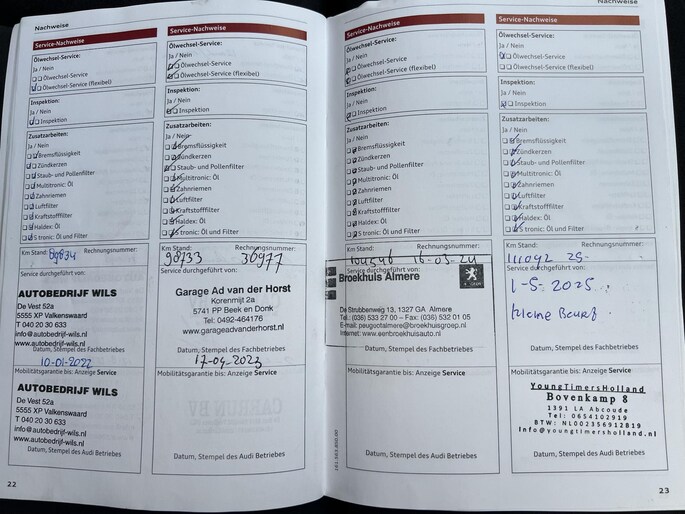 Nachweise
Service-Nachweise
Ölwechsel-Service:
Ja / Nein
Ölwechsel-Service
Ölwechsel-Service (flexibel)
Inspektion:
Ja / Nein
Inspektion
Zusatzarbeiten:
Ja / Nein
Bremsflüssigkeit
Zündkerzen
Staub- und Pollenfilter
Multitronic: Öl
Zahnriemen
Luftfilter
Kraftstofffilter
Haldex: Öl
S tronic: Öl und Filter
Km Stand: Rechnungsnummer:
89834
Service durchgeführt von:
AUTOBEDRIJF WILS
De Vest 52a
5555 XP Valkenswaard
T 040 20 30 633
info@autobedrijf-wils.nl
www.autobedrijf-wils.nl
Datum, Stempel des Fachbetriebes
10-01-2022
Mobilitätsgarantie bis: Anzeige Service
AUTOBEDRIJF WILS
De Vest 52a
5555 XP Valkenswaard
T 040 20 30 633
info@autobedrijf-wils.nl
www.autobedrijf-wils.nl
Datum, Stempel des Audi Betriebes
22
Service-Nachweise
Ölwechsel-Service:
Ja / Nein
Ölwechsel-Service
Ölwechsel-Service (flexibel)
Inspektion:
Ja / Nein
Inspektion
Zusatzarbeiten:
Ja / Nein
Bremsflüssigkeit
Zündkerzen
Staub- und Pollenfilter
Multitronic: Öl
Zahnriemen
Luftfilter
Kraftstofffilter
Haldex: Öl
S tronic: Öl und Filter
Km Stand: Rechnungsnummer:
98733 36977
Service durchgeführt von:
Garage Ad van der Horst
Korenmijt 2a
5741 PP Beek en Donk
Tel: 0492-464176
www.garageadvanderhorst.nl
Datum, Stempel des Fachbetriebes
17-04-2023
Mobilitätsgarantie bis: Anzeige Service
Datum, Stempel des Audi Betriebes
Service-Nachweise
Ölwechsel-Service:
Ja / Nein
Ölwechsel-Service
Ölwechsel-Service (flexibel)
Inspektion:
Ja / Nein
Inspektion
Zusatzarbeiten:
Ja / Nein
Bremsflüssigkeit
Zündkerzen
Staub- und Pollenfilter
Multitronic: Öl
Zahnriemen
Luftfilter
Kraftstofffilter
Haldex: Öl
S tronic: Öl und Filter
Km Stand: Rechnungsnummer:
104546 16-03-24
Service durchgeführt von:
Broekhuis Almere
De Strubbenweg 13, 1327 GA Almere
Tel.: (036) 533 27 00 – Fax: (036) 532 01 05
E-mail: peugeotalmere@broekhuisgroep.nl
Internet: www.eenbroekhuisauto.nl
Datum, Stempel des Fachbetriebes
Mobilitätsgarantie bis: Anzeige Service
Datum, Stempel des Audi Betriebes
Nachweise
Service-Nachweise
Ölwechsel-Service:
Ja / Nein
Ölwechsel-Service
Ölwechsel-Service (flexibel)
Inspektion:
Ja / Nein
Inspektion
Zusatzarbeiten:
Ja / Nein
Bremsflüssigkeit
Zündkerzen
Staub- und Pollenfilter
Multitronic: Öl
Zahnriemen
Luftfilter
Kraftstofffilter
Haldex: Öl
S tronic: Öl und Filter
Km Stand: Rechnungsnummer:
Service durchgeführt von:
1-5-2025
kleine Beurt
Datum, Stempel des Fachbetriebes
Mobilitätsgarantie bis: Anzeige Service
YoungTimersHolland
Bovenkamp 8
1391 LA Abcoude
Tel: 0654102919
BTW: NL002356912B19
Info@youngtimersholland.nl
Datum, Stempel des Audi Betriebes
23